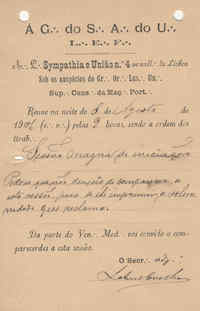 Á G∴ do S∴ A∴ do U∴
L∴ E∴ F∴
A R∴ L∴ Sympathia e União n.º 4 ao vall∴ de Lisboa
Sob os auspicios do Gr∴ Or∴ Lus∴ Un∴
Sup∴ Cons∴ da Maç∴ Port∴
Reune na noite de 8 de Agosto de
190 (e∴ v∴) pelas 9 horas, sendo a ordem dos
trab∴
Sessão magna de iniciação
Pede a
esta sessão, para se lhe imprimir a solem
nidade que reclama.
Da parte do Ven∴ Med∴ vos convido a com-
parecerdes a esta sessão.
O Secr∴ adj∴